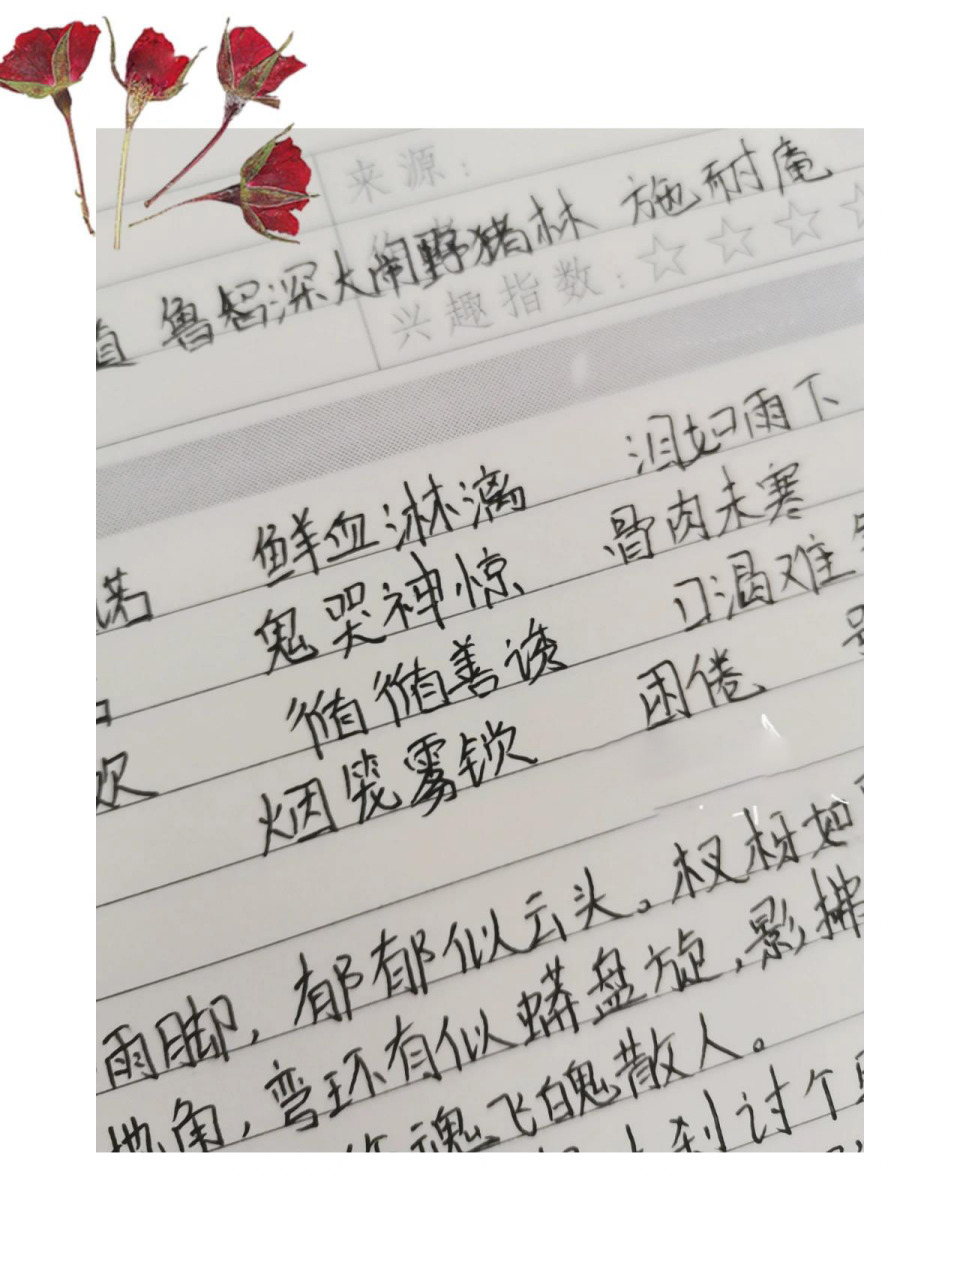 来源:
道 鲁智深大闹野猪林 施耐庵
兴趣指数: ☆☆☆☆
鲜血淋漓 泪如雨下
诺 鬼哭神惊 骨肉未寒
循循善诱 口渴难
欢 烟笼雾锁 困倦
雨脚,郁郁似云头。杈枒如
地角,弯环有似蟒盘旋,影拂
魂飞魄散人。
刹讨个